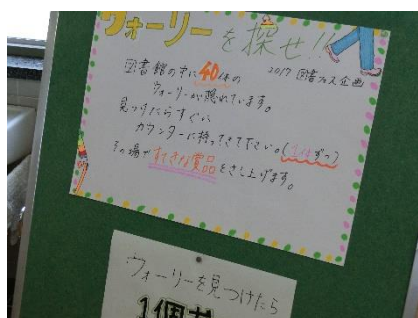 ウォーリーを探せ!!
2017 図書フェス企画
図書館の中に40体の
ウォーリーが隠れています。
見つけたらすぐに
カウンターに持ってきて下さい。(1体ずつ)
その場ですてきな賞品をさし上げます。
ウォーリーを見つけたら
1個